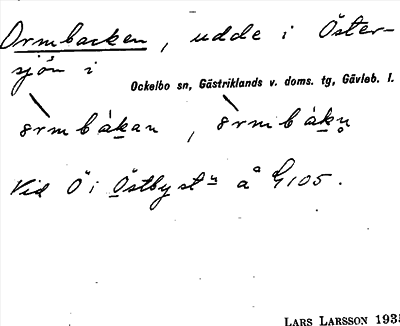 Ormbacken, udde i Öster-
sjön i
Ockelbo sn, Gästriklands v. doms. tg, Gävleb. l.
ormbákan, ormbákn̥
Vid Ö i Östbyst n å G 105.
LARS LARSSON 1935